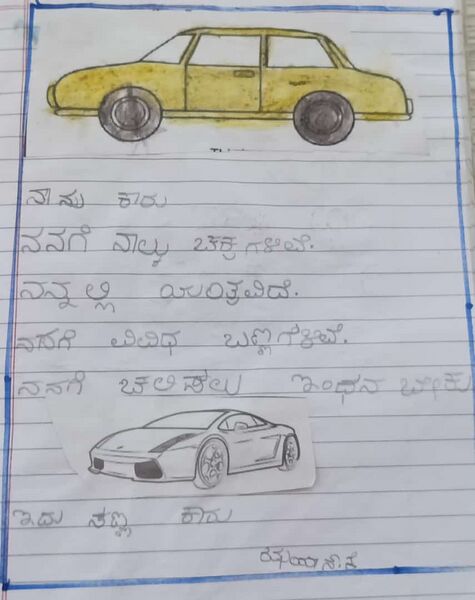 ನಾನು ಕಾರು
ನನಗೆ ನಾಲ್ಕು ಚಕ್ರಗಳಿವೆ.
ನನ್ನಲ್ಲಿ ಯಂತ್ರವಿದೆ.
ನನಗೆ ವಿವಿಧ ಬಣ್ಣಗಳಿವೆ.
ನನಗೆ ಚಲಿಸಲು ಇಂಧನ ಬೇಕು
ಇದು ಸಣ್ಣ ಕಾರು